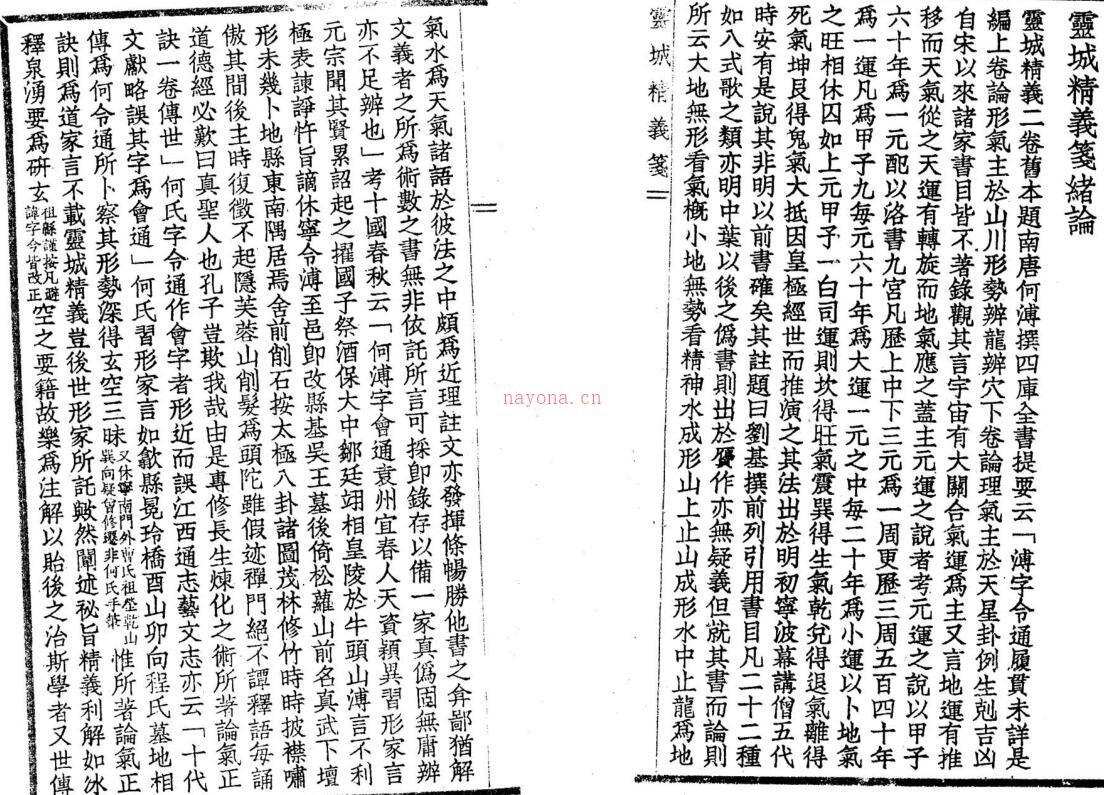 靈城精義箋緒論
靈城精義二卷舊本題南唐何溥撰四庫全書提要云「溥字令通履貫未詳是
編上卷論形氣主於山川形勢辨龍辨穴下卷論理氣主於天星卦例生剋吉凶
自宋以來諸家書目皆不著錄觀其言宇宙有大關合氣運為主又言地運有推
移而天氣從之天運有轉旋而地氣應之蓋主元運之說者考元運之說以甲子
六十年為一元配以洛書九宮凡歷上中下三元為一周更歷三周五百四十年
為一運凡為甲子九每元六十年為大運一元之中每二十年為小運以卜地氣
之旺相休囚如上元甲子一白司運則坎得旺氣震巽得生氣乾兌得退氣離得
死氣坤艮得鬼氣大抵因皇極經世而推演之其法出於明初寧波幕講僧五代
時安有是說其非明以前書確矣其註題曰劉基撰前列引用書目凡二十二種
如八式歌之類亦明中葉以後之偽書則出於贗作亦無疑義但就其書而論則
所云大地無形看氣概小地無勢看精神水成形山上止山成形水中止龍為地
靈城精義箋
氣水為天氣諸語於彼法之中頗為近理註文亦發揮條暢勝他書之弇鄙猶解
文義者之所為術數之書無非依託所言可採即錄存以備一家真偽固無庸辨
亦不足辨也」考十國春秋云「何溥字會通袁州宜春人天資穎異習形家言
元宗聞其賢累詔起之擢國子祭酒保大中鄒廷翊相皇陵於牛頭山溥言不利
極表諫諍忤旨謫休寧令溥至邑即改縣基吳王墓後倚松蘿山前名真武下壇
形未幾卜地縣東南隅居焉舍前削石按太極八卦諸圖茂林修竹時時披襟嘯
傲其間後主時復徵不起隱芙蓉山削髮為頭陀雖假迹禪門絕不譚釋語每誦
道德經必歎曰真聖人也孔子豈欺我哉由是專修長生煉化之術所著論氣正
訣一卷傳世」何氏字令通作會字者形近而誤江西通志藝文志亦云「十代
文獻略誤其字為會通」何氏習形家言如歙縣晃玲橋酉山卯向程氏墓地相
傳為何令通所卜察其形勢深得玄空三昧又休寧南門外曹氏祖塋乾山巽向疑曾修遷非何氏手筆惟所著論氣正
訣則為道家言不載靈城精義豈後世形家所託歟然闡述秘旨精義利解如冰
釋泉湧要為研玄祖緜謹按凡避諱字今皆改正空之要籍故樂為注解以貽後之治斯學者又世傳
nayona.cn